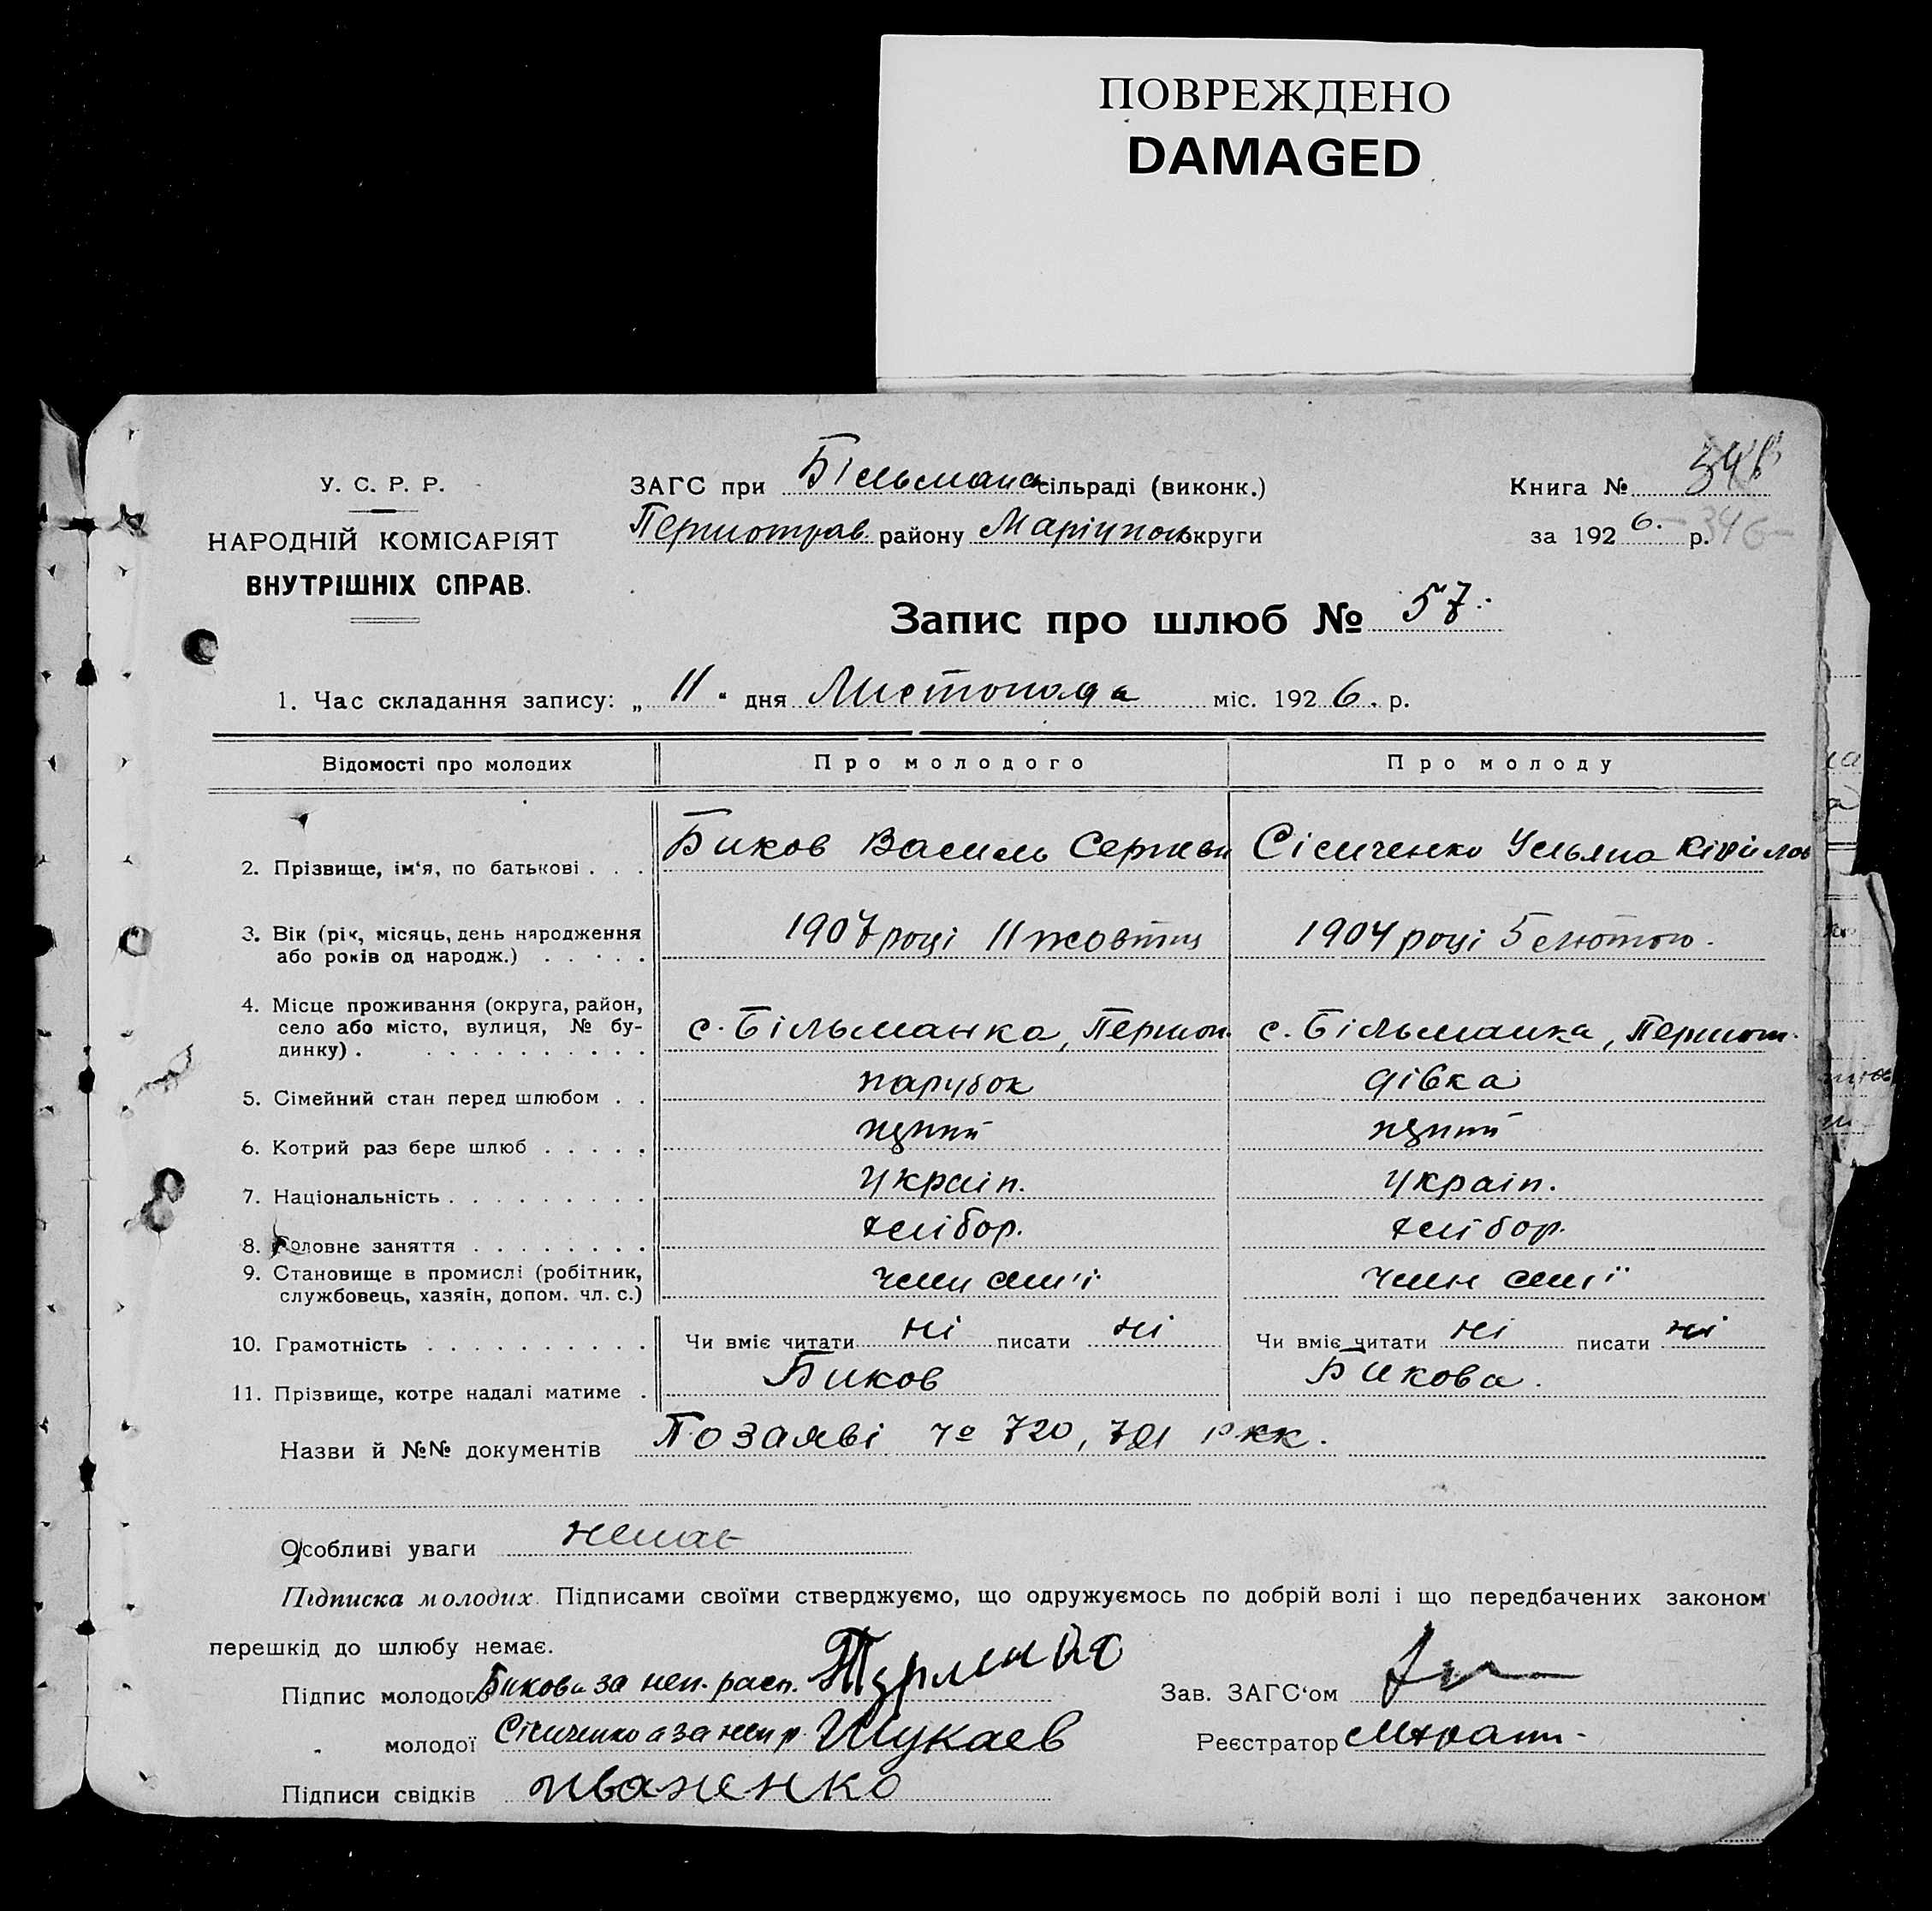 ПОВРЕЖДЕНО
DAMAGED
У. С. Р. Р.
НАРОДНІЙ КОМІСАРІЯТ
ВНУТРІШНІХ СПРАВ.
ЗАГС при Більманс сільраді (виконк.)
Першотрав району Маріупол округи
Книга №
за 1926. р. 346
Запис про шлюб № 57.
1. Час складання запису: „ 11 “ дня Листопада міс. 1926. р.
Відомості про молодих Про молодого Про молоду
2. Прізвище, ім'я, по батькові . . . Биков Василь Сергиєви Сісиченко Ульяна Кірілов
3. Вік (рік, місяць, день народження
або років од народж.) . . . . . 1907 році 11 жовтня 1904 році 5 лютого.
4. Місце проживання (округа, район,
село або місто, вулиця, № бу-
динку) . . . . . . . . . . . с. Більманка, Першот. с. Більманка, Першот.
5. Сімейний стан перед шлюбом . . парубок дівка
6. Котрий раз бере шлюб . . . . .
7. Національність . . . . . . . . . Україн. Україн.
8. Головне заняття . . . . . . . . хлібор. хлібор.
9. Становище в промислі (робітник,
службовець, хазяїн, допом. чл. с.) член сім'ї член сімї
10. Грамотність . . . . . . . . . . Чи вміє читати ні писати ні Чи вміє читати ні писати ні
11. Прізвище, котре надалі матиме . Биков Бикова.
Назви й №№ документів По заяві чо 720, 721 ркк.
Особливі уваги немає
Підписка молодих. Підписами своїми стверджуємо, що одружуємось по добрій волі і що передбачених законом
перешкід до шлюбу немає.
Підпис молодого Биков а за неп. расп.
Зав. ЗАГС'ом
" молодої Сісиченко а за неп р Шукаев
Реєстратор
Підписи свідків Иваненко